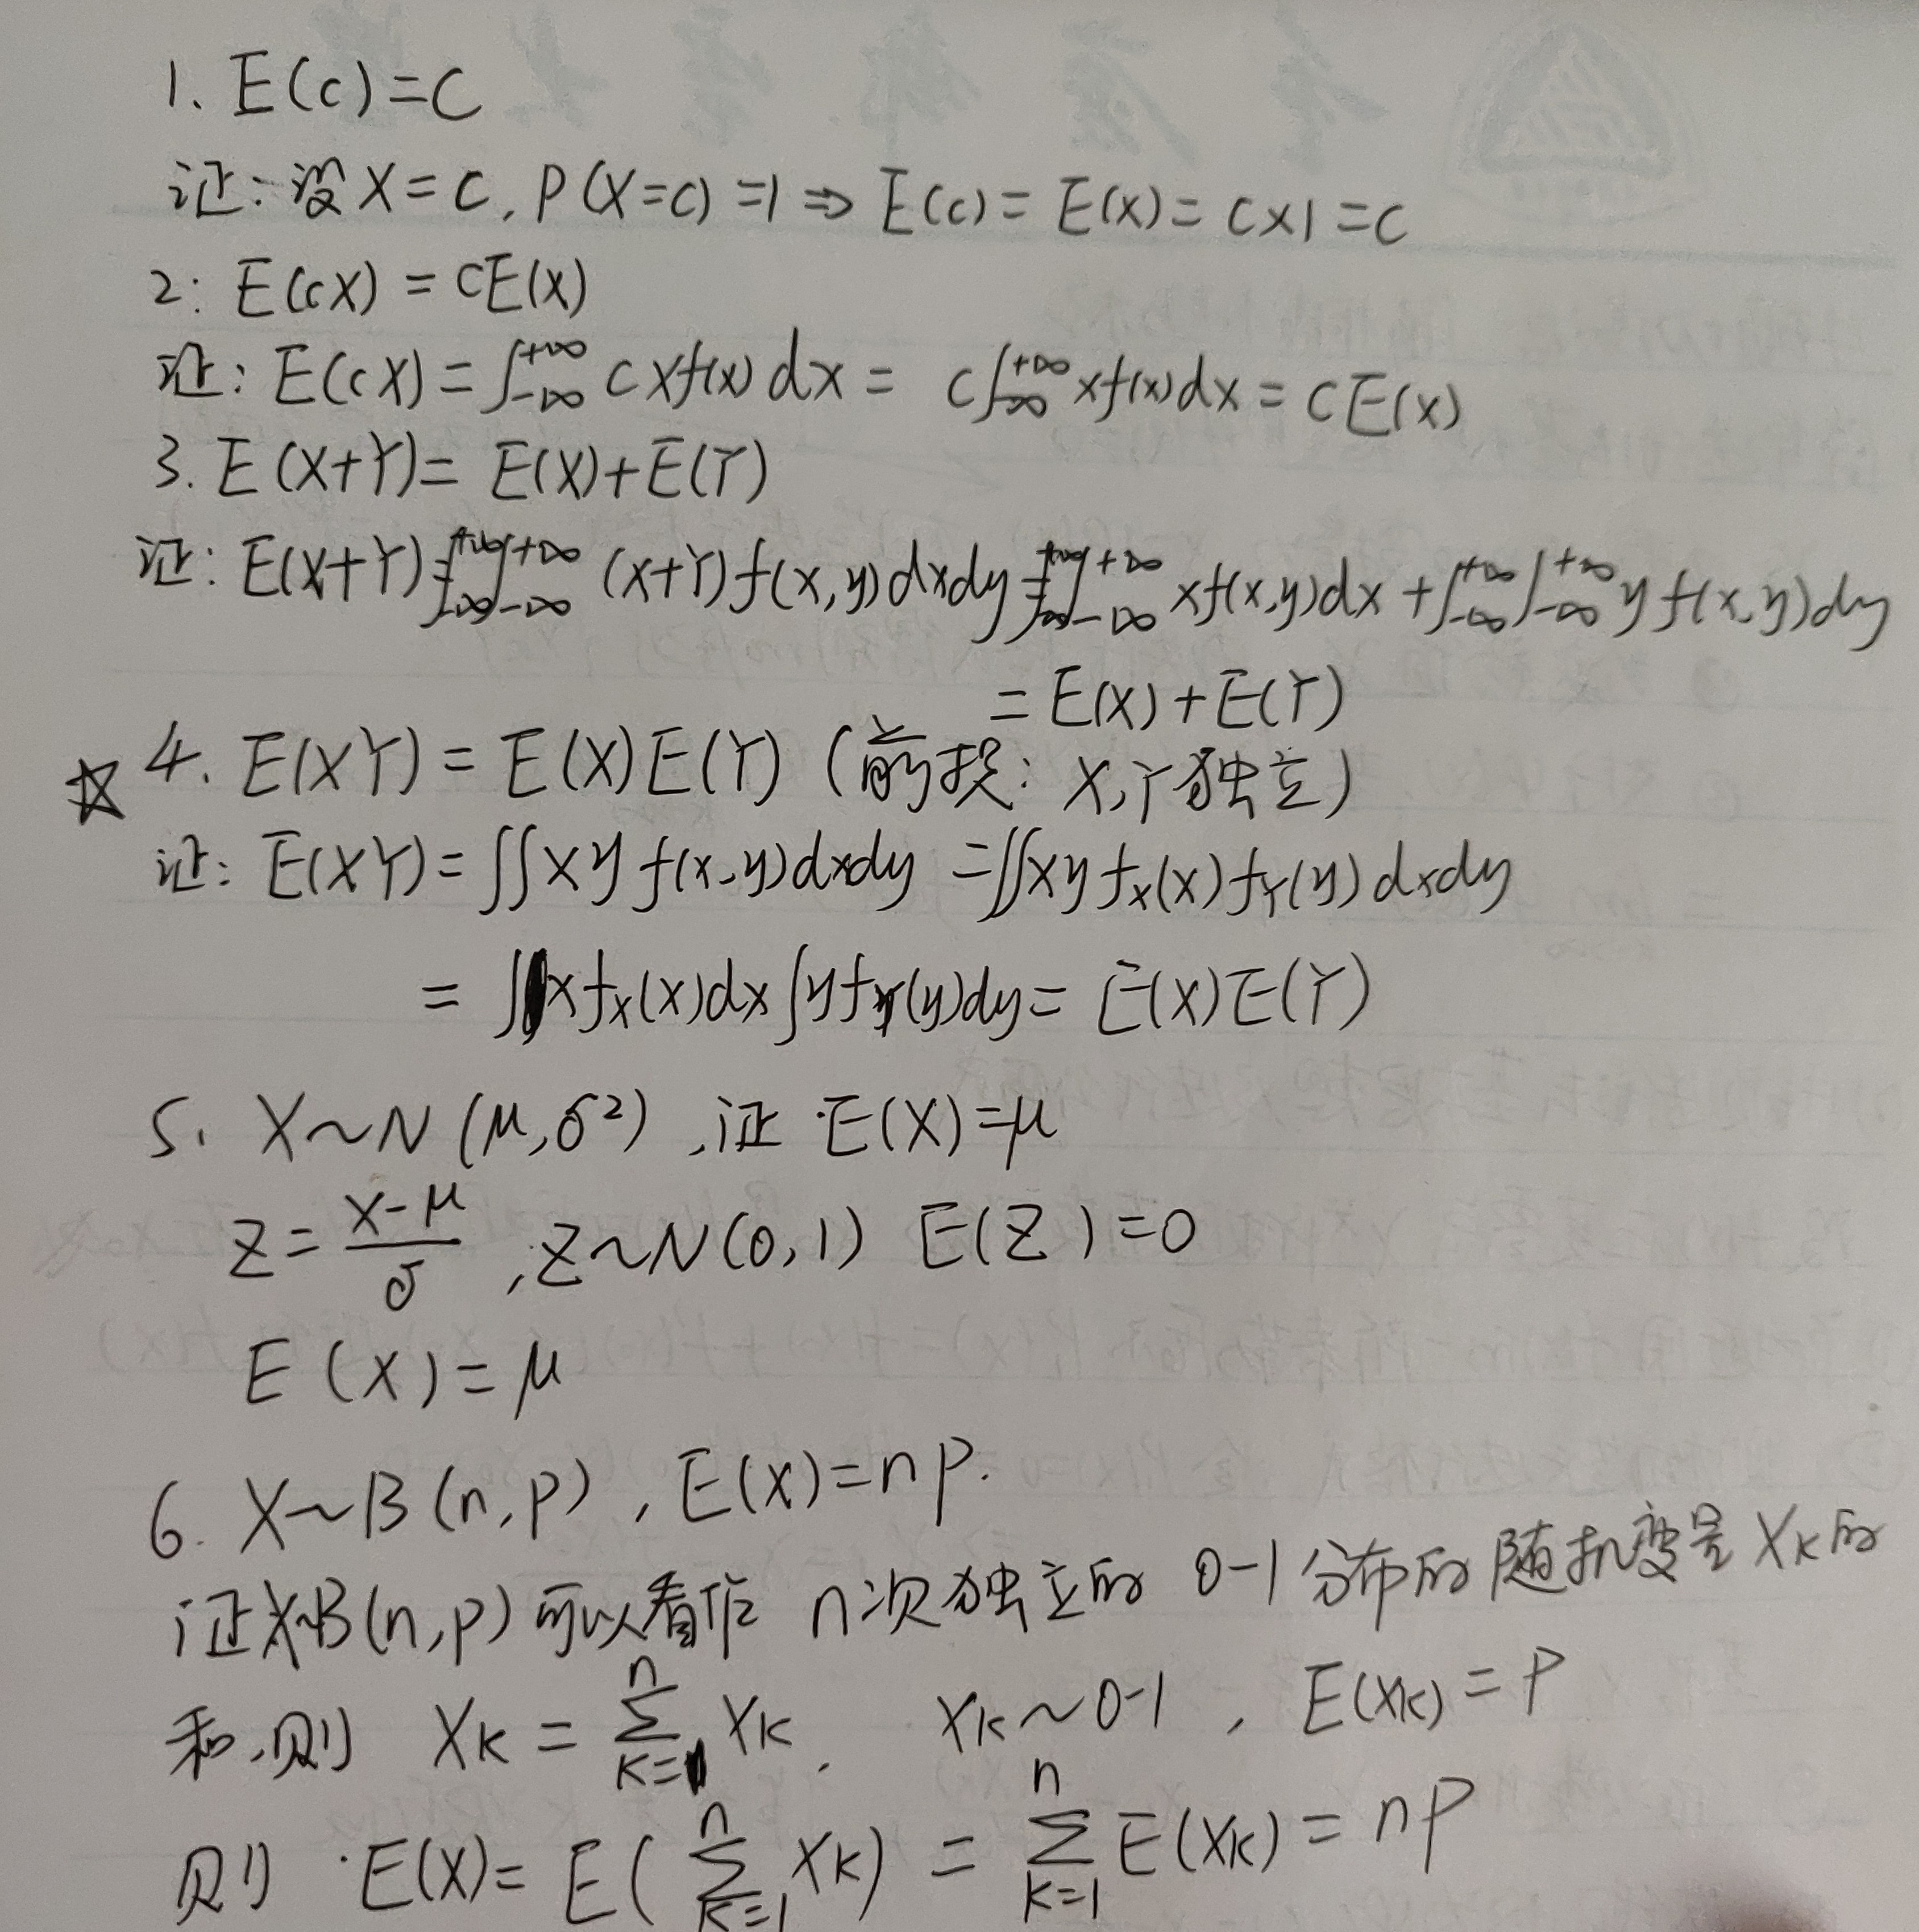 1. E(c)=C
证:设X=C,P(X=c)=1⇒E(c)=E(X)=C×1=C
2: E(cX)=CE(X)
证:E(cX)=∫_{-∞}^{+∞}cxf(x)dx=c∫_{-∞}^{+∞}xf(x)dx=CE(X)
3. E(X+Y)=E(X)+E(Y)
证:E(X+Y)=∫_{-∞}^{+∞}∫_{-∞}^{+∞}(x+Y)f(x,y)dxdy=∫_{-∞}^{+∞}∫_{-∞}^{+∞}xf(x,y)dx+∫_{-∞}^{+∞}∫_{-∞}^{+∞}yf(x,y)dy
=E(X)+E(Y)
☆4. E(XY)=E(X)E(Y)(前提:X,Y独立)
证:E(XY)=∬xyf(x,y)dxdy=∬xyf_X(x)f_Y(y)dxdy
=∫xf_X(x)dx∫yf_Y(y)dy=E(X)E(Y)
5. X~N(μ,σ²),证E(X)=μ
Z=\frac{X-μ}{σ},Z~N(0,1) E(Z)=0
E(X)=μ
6. X~B(n,p),E(X)=np.
证X~B(n,p)可以看作n次独立的0-1分布的随机变量X_K的
和,则 X_K=\sum_{K=1}^{n}X_K. X_K~0-1,E(X_K)=P
则E(X)=E(\sum_{K=1}^{n}X_K)=\sum_{K=1}^{n}E(X_K)=nP